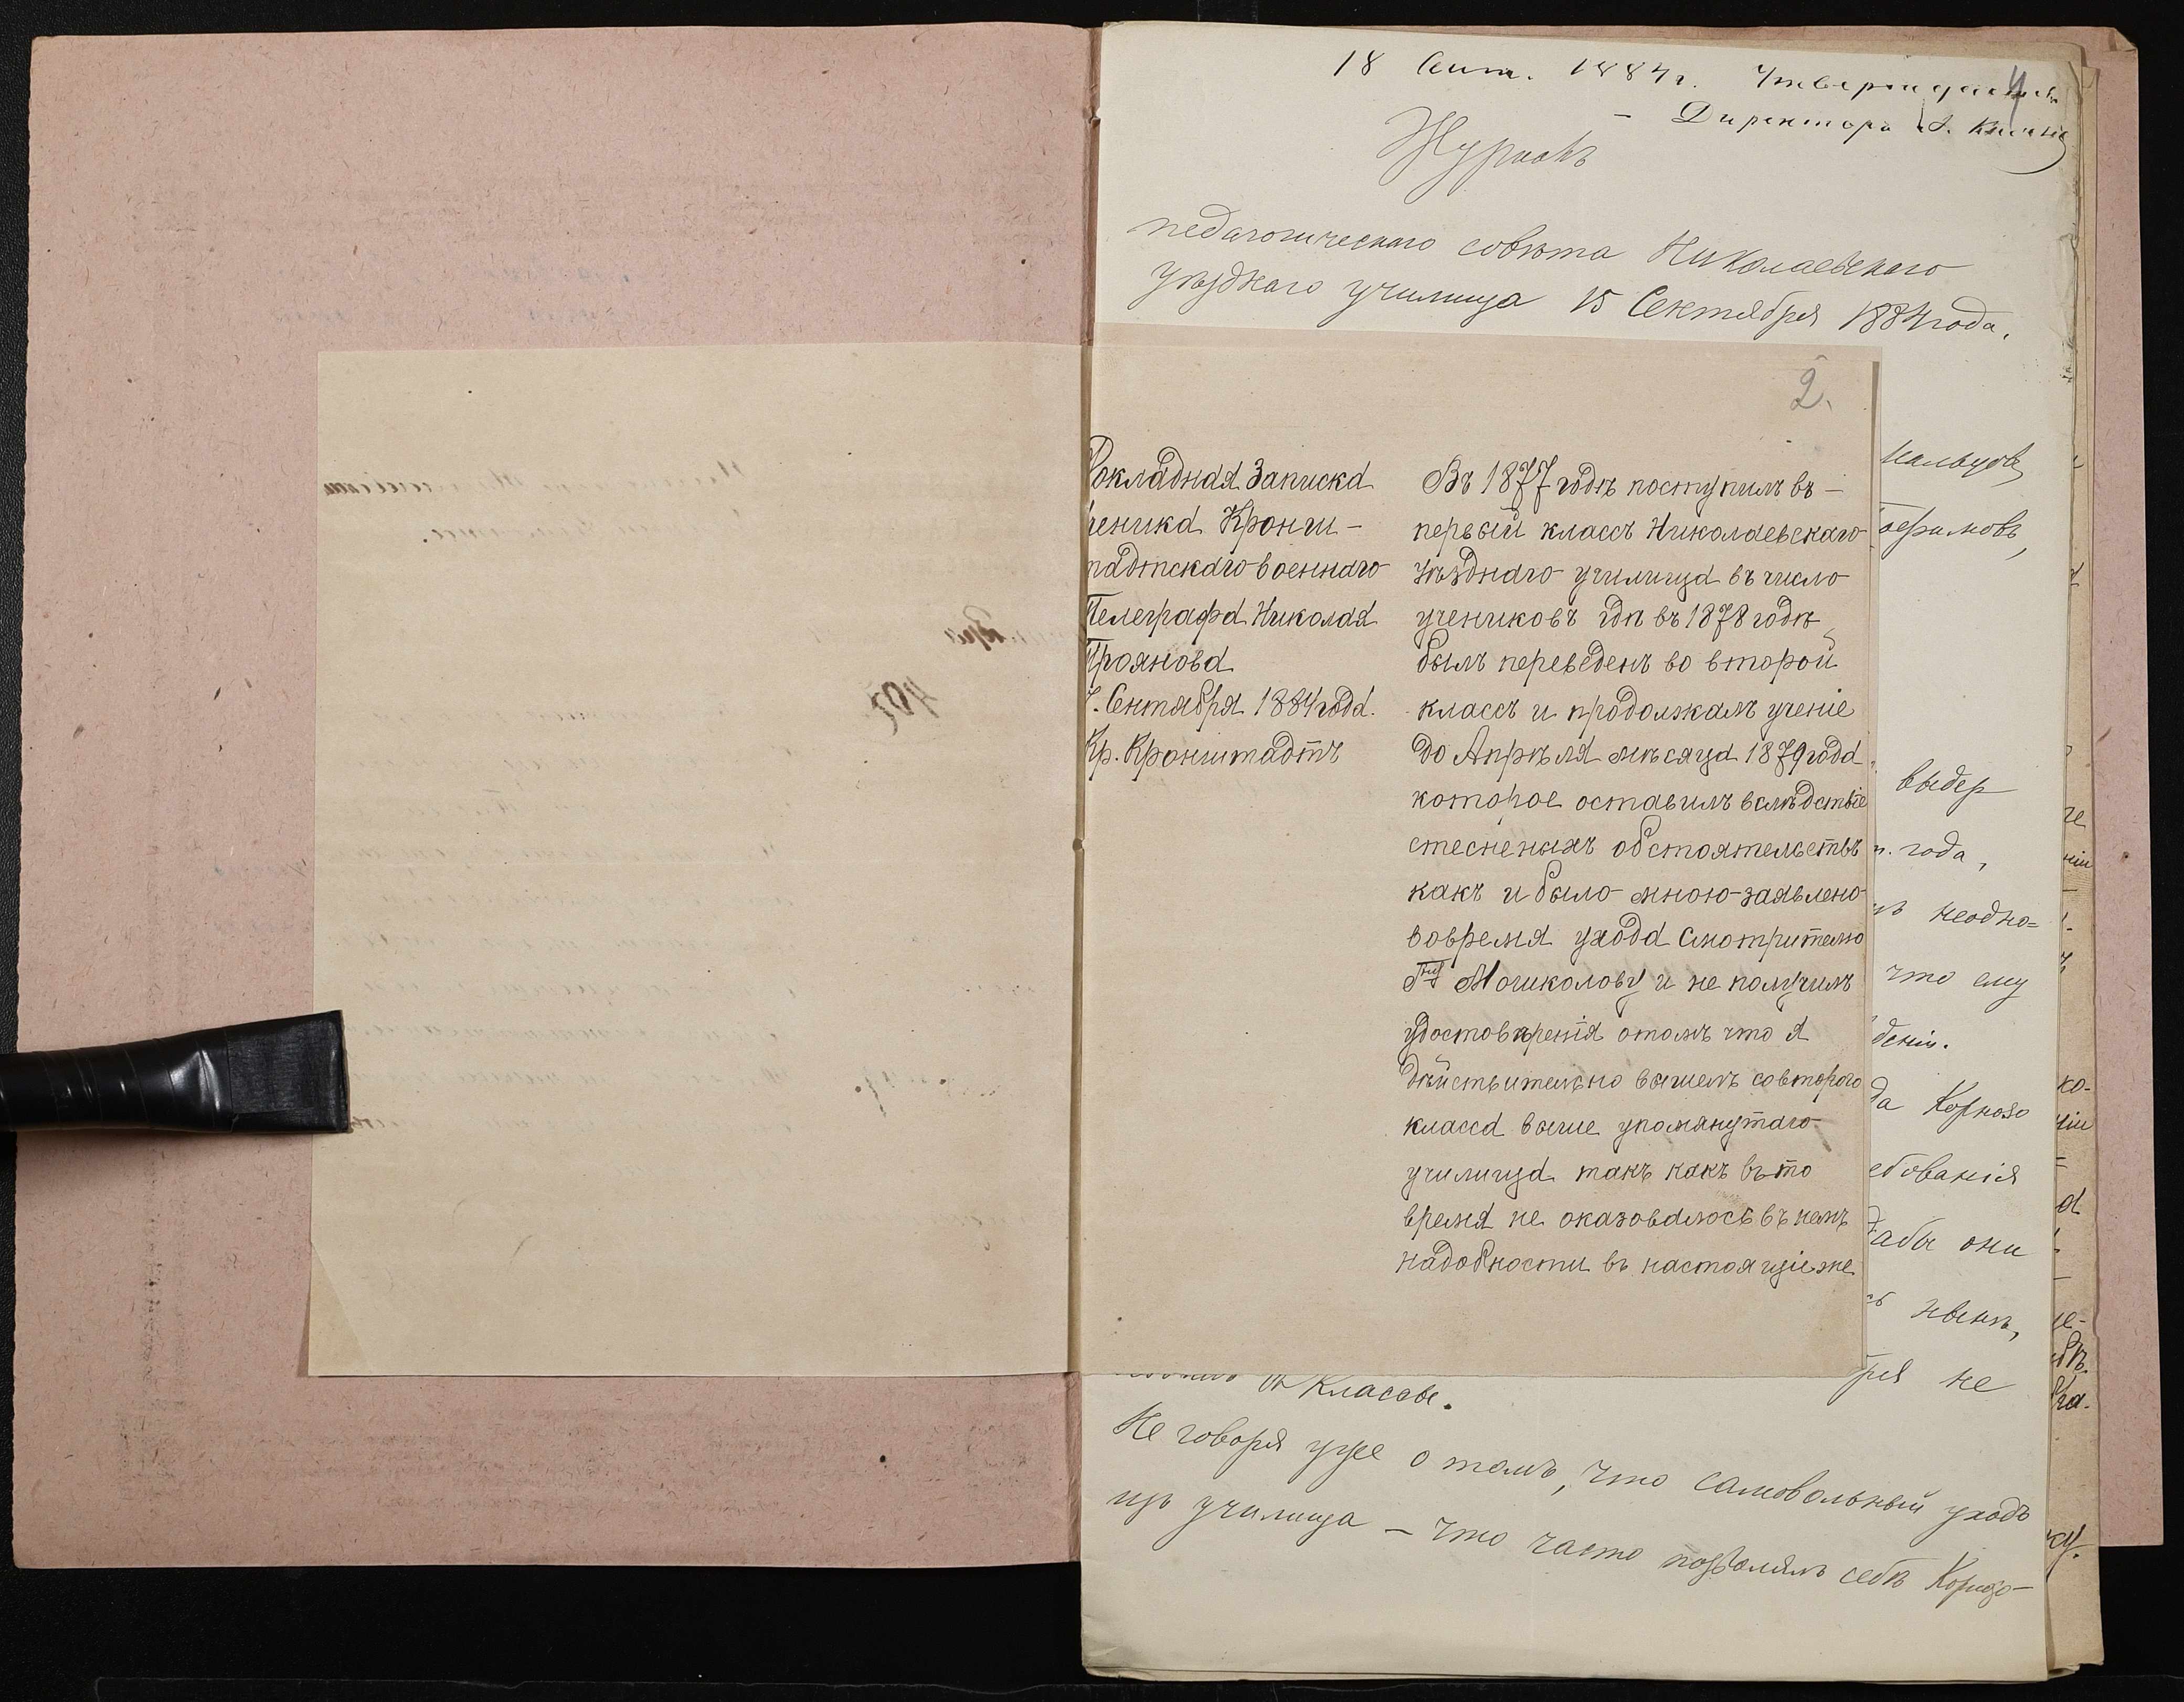 18 Сент. 1884 г.
4
Директора
Журналъ
педагогическаго совѣта Николаевскаго
уѣзднаго училища 15 Сентября 1884 года.
2.
Докладная Записка
ученика Кронш-
тадтскаго военнаго
Телеграфа Николая
Троянова
7. Сентября 1884 года.
Кр. Кронштадтъ
Въ 1877 годѣ поступилъ въ -
первый классъ Николаевскаго
уѣзднаго училища въ число
учениковъ гдѣ въ 1878 годѣ
былъ переведенъ во второй
классъ и продолжалъ ученіе
до Апрѣля мѣсяца 1879 года
которое оставилъ вслѣдствіе
стесненыхъ обстоятельствъ
какъ и было мною заявлено
вовремя ухода Смотрителю
Мошколову и не получилъ
удостовѣренія отомъ что я
дѣйствительно вышелъ совторого
класса выше упомянутаго
училища такъ какъ въ то
время не оказовалось въ немъ
надобности въ настоящіе же
выдер
года,
неодно=
что ему
деніи.
да Корнозо
ебованія
дабы они
ря не
классѣ.
Не говоря уже о томъ, что самовольный уходъ
изъ училища - что часто позволялъ себѣ Корнозо-